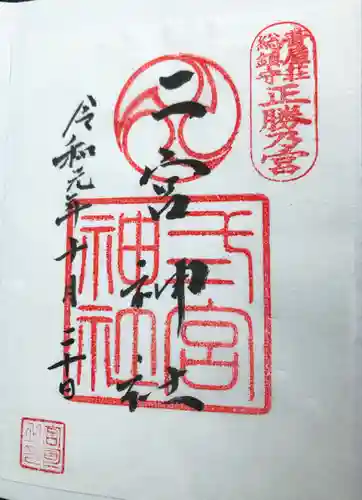 葺屋荘
総鎮守
正勝乃宮
二宮神社
二宮
神社
令和元年十月二十日